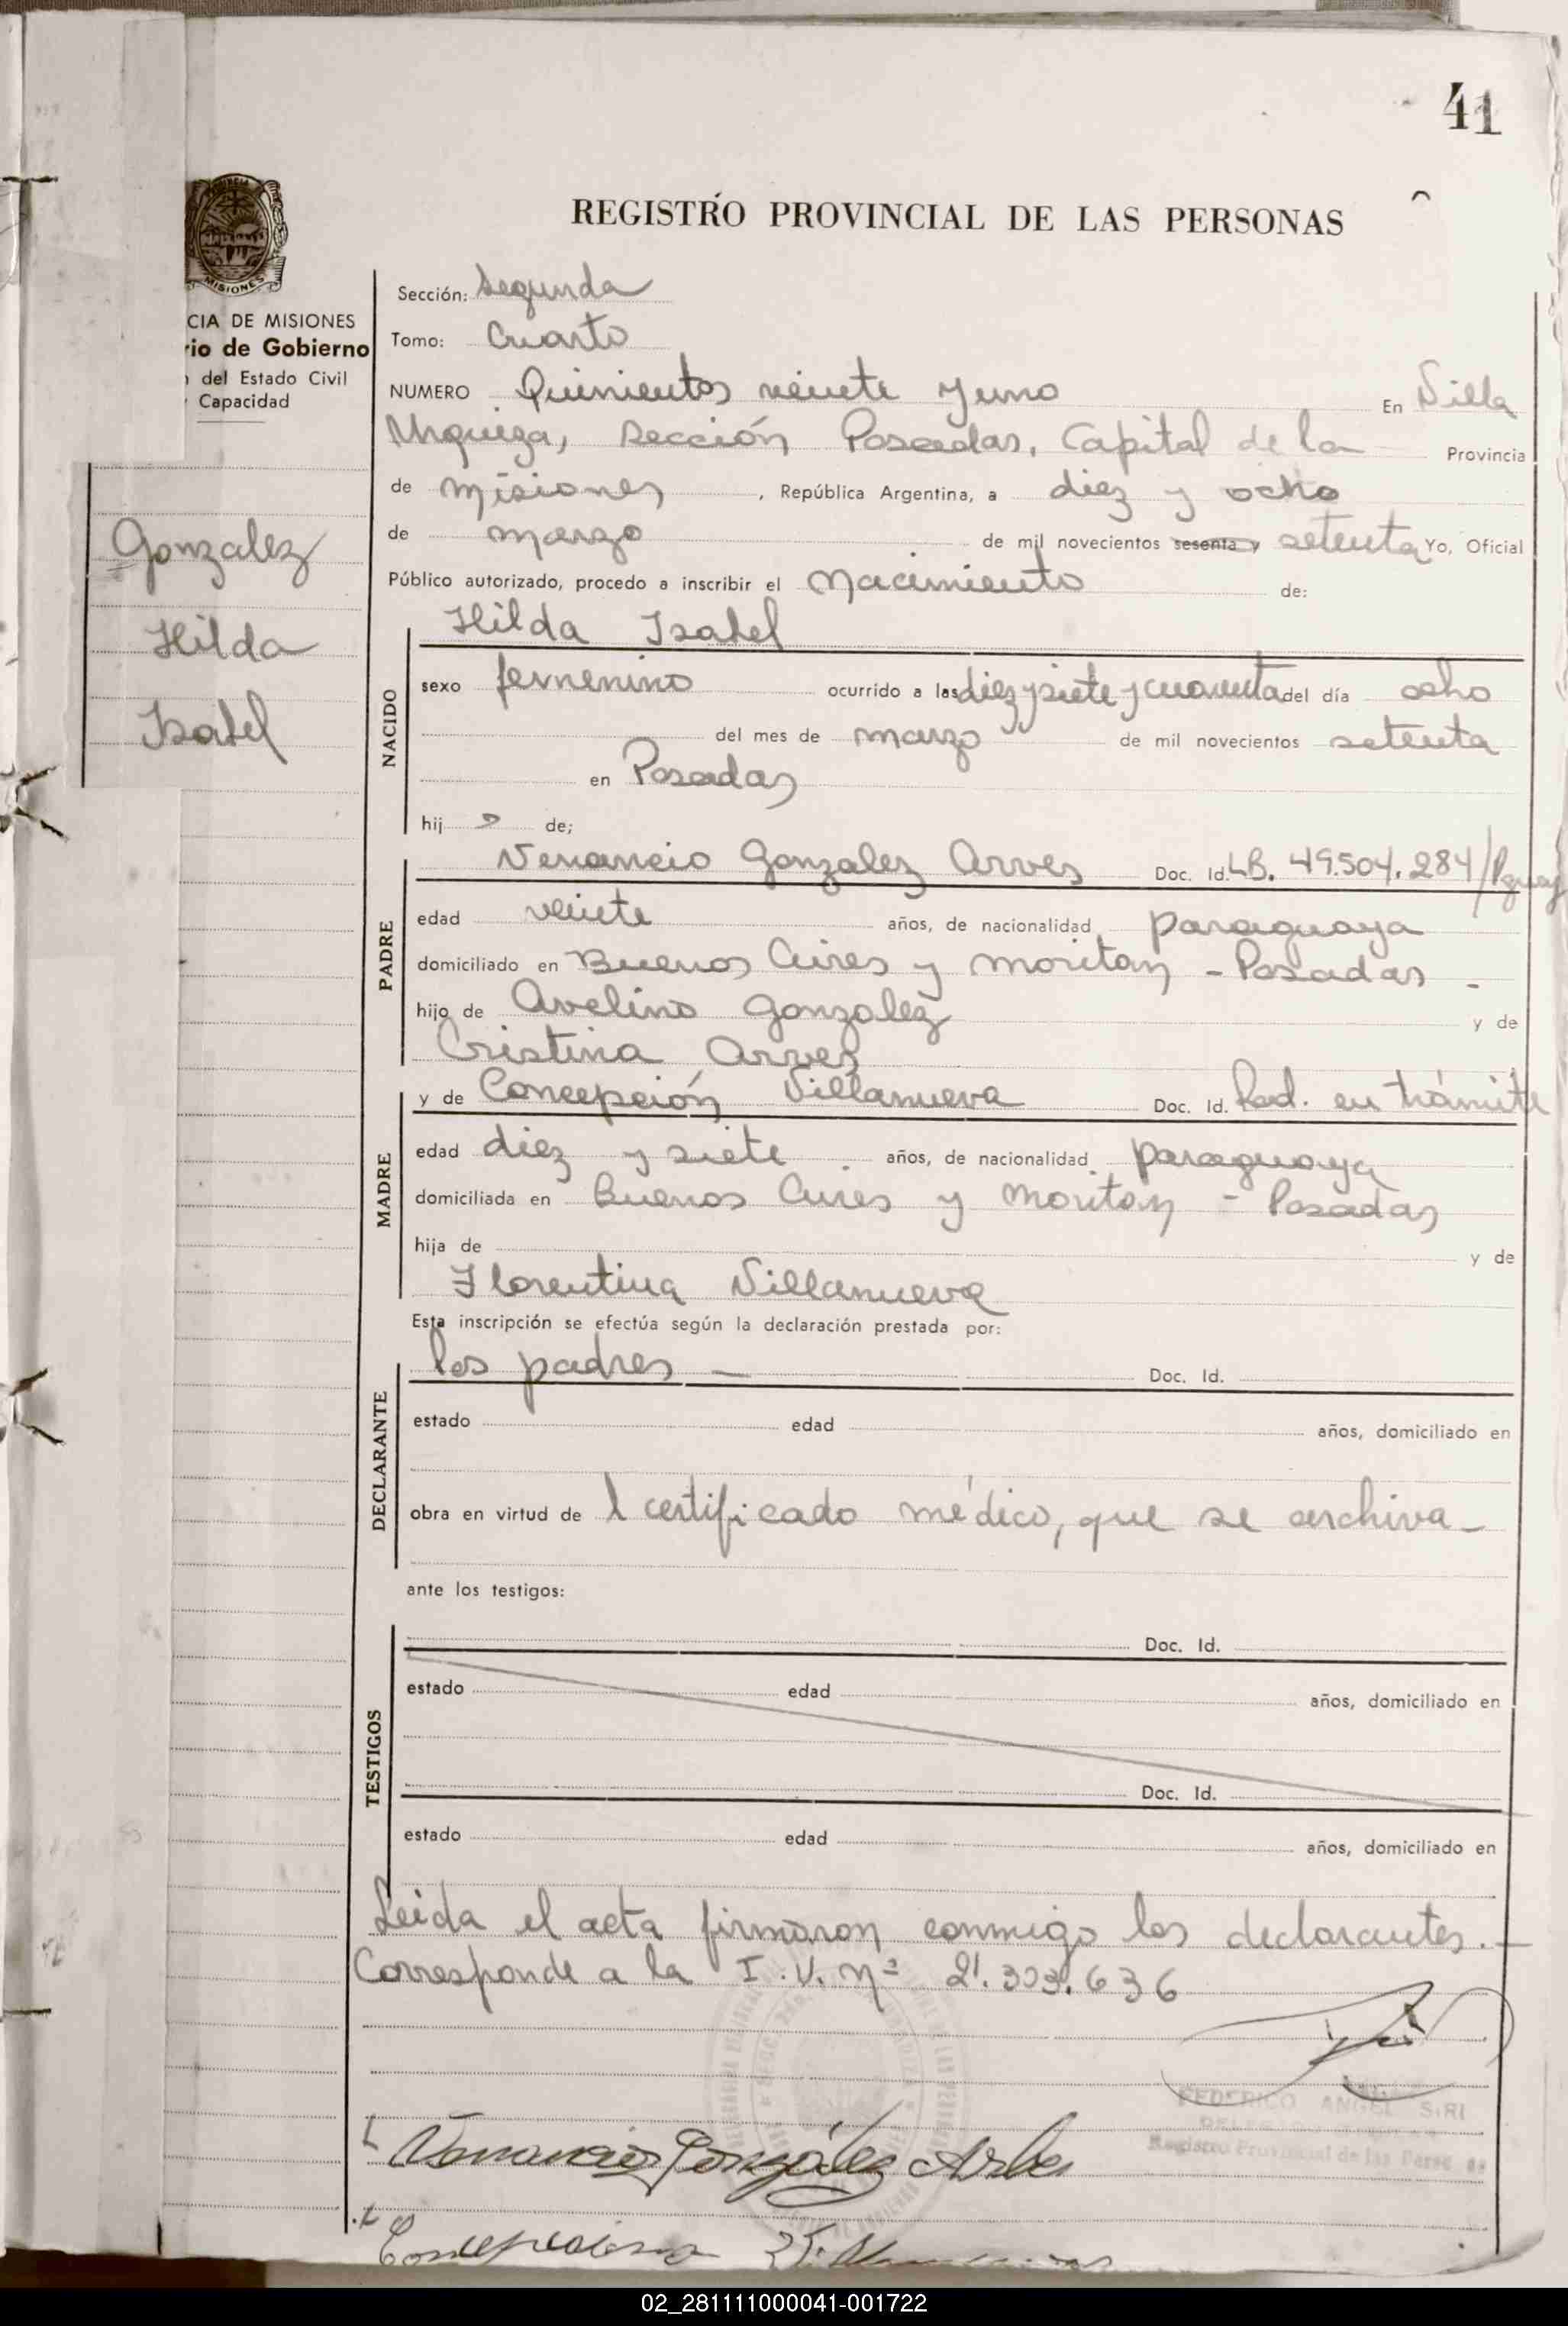 41
REGISTRO PROVINCIAL DE LAS PERSONAS
MISIONES
CIA DE MISIONES
rio de Gobierno
del Estado Civil
Capacidad
Gonzalez
Hilda
Isabel
Sección: Segunda
Tomo: Cuarto
NUMERO Quinientos veinte y uno En Villa
Urquiza, Sección Posadas, Capital de la Provincia
de Misiones, República Argentina, a diez y ocho
de marzo de mil novecientos sesenta y setenta Yo, Oficial
Público autorizado, procedo a inscribir el Nacimiento de:
Hilda Isabel
NACIDO
sexo femenino ocurrido a las diez y siete y cuarenta del día ocho
del mes de marzo de mil novecientos setenta
en Posadas
hij a de;
PADRE
Venancio Gonzalez Arves Doc. Id. LB. 49.504.284/Pguay
edad veinte años, de nacionalidad paraguaya
domiciliado en Buenos Aires y moritan - Posadas -
hijo de Avelino Gonzalez y de
Cristina Arves
MADRE
y de Concepción Villanueva Doc. Id. Rad. en trámite
edad diez y siete años, de nacionalidad paraguaya
domiciliada en Buenos Aires y moritan - Posadas
hija de y de
Florentina Villanueva
Esta inscripción se efectúa según la declaración prestada por:
DECLARANTE
los padres - Doc. Id.
estado edad años, domiciliado en
obra en virtud de l certificado médico, que se archiva -
ante los testigos:
TESTIGOS
Doc. Id.
estado edad años, domiciliado en
Doc. Id.
estado edad años, domiciliado en
Leida el acta firmaron conmigo los declarantes. -
Corresponde a la I.V. nº 21.303.636
FEDERICO ANGEL SIRI
Registro Provincial de las Personas
Venancio González Arbes
Concepcion
02_281111000041-001722